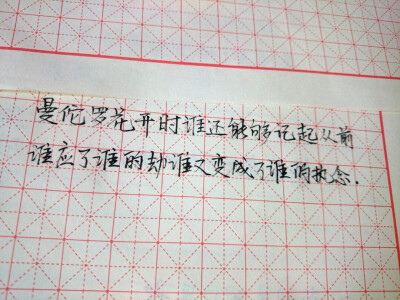 曼陀罗花开时谁还能够记起从前
谁应了谁的劫谁又变成了谁的执念.